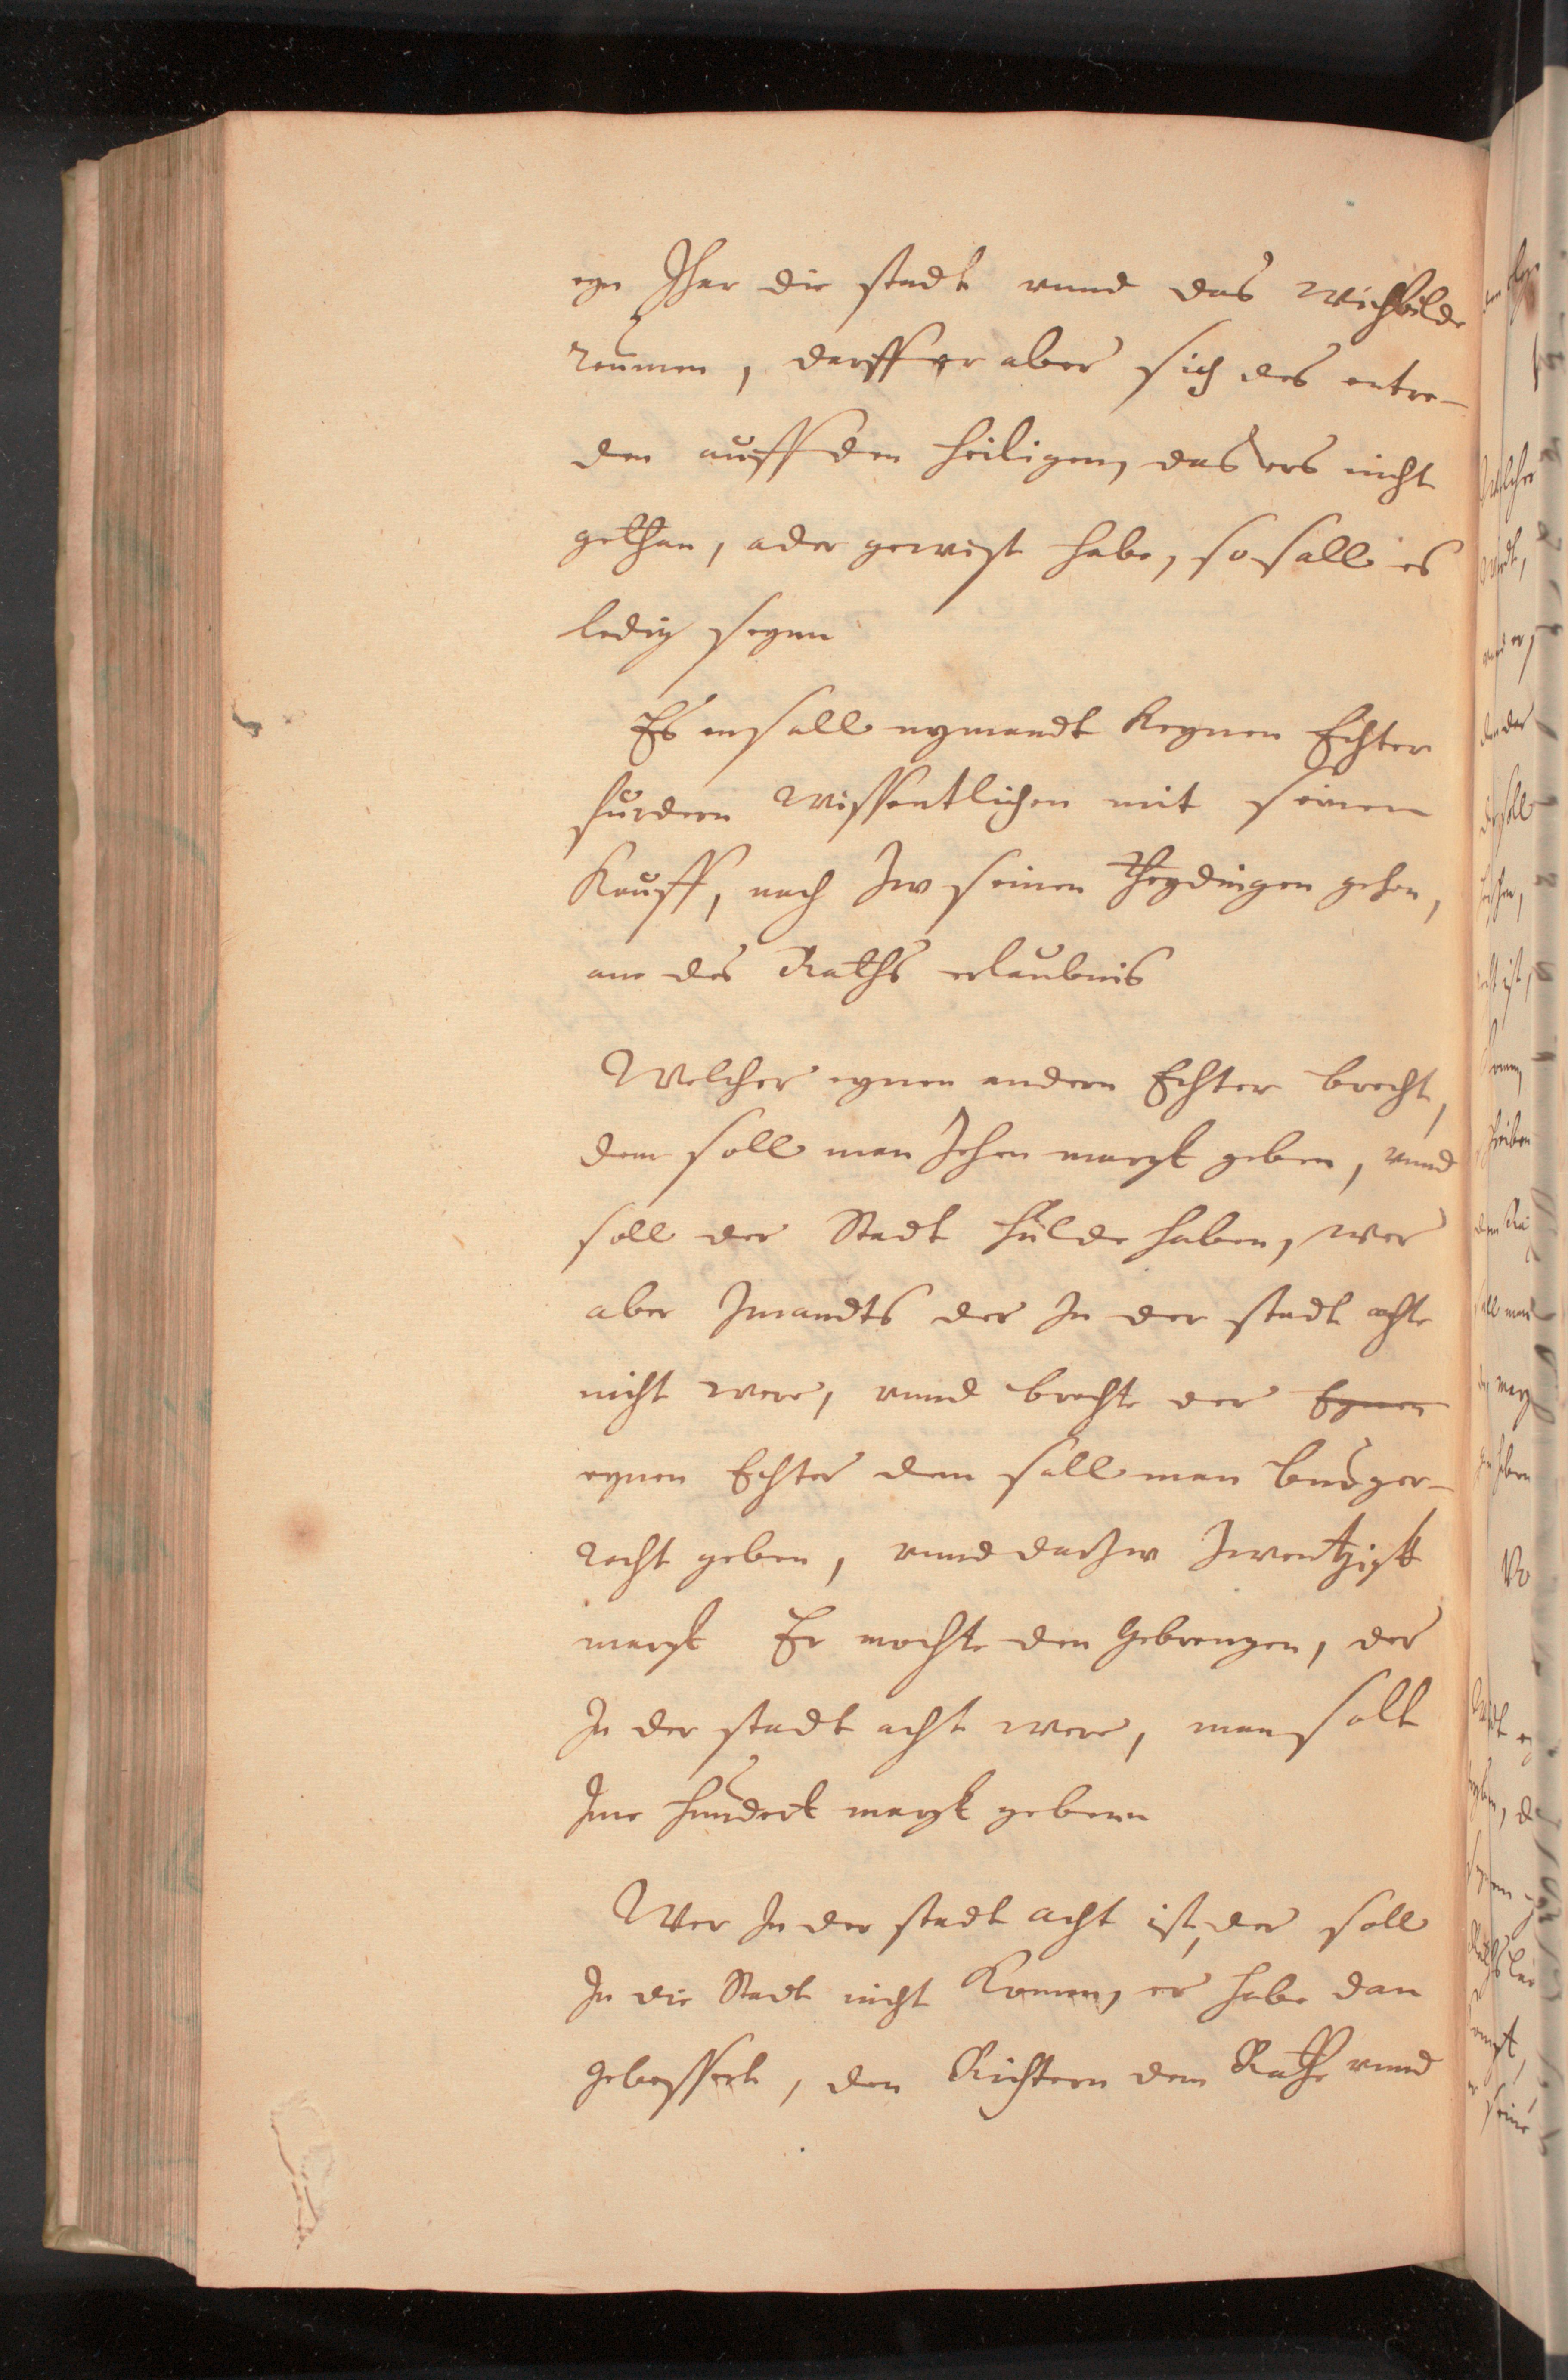 eyn Jhar die stadt vnnd das Wichbilde
reumen, darff er aber sich des entre-
den auff den heiligen, das ers nicht
gethan, ader gewist habe, so sall es
ledig seynn
Es en sall nymandt keynen Echter
furdern wissentlichen mit seinem
Kauff, nach zw seinen theydingen gehen,
ane des Raths erlaubnis
Welcher eynen andern Echter brecht,
dem soll man zehen margk geben, vnnd
soll der Stadt hulde haben, wer
aber Jmandts der Jn der stadt achte
nicht were, vnnd brechte der Eynen
eynen Echter dem sall man burger-
recht geben, vnnd darzw zwentzigk
margk Er mochte den gebrengen, der
Jn der stadt acht were, man solt
Jme hundert margk gebenn
Wer Jn der stadt acht ist, der soll
Jn die Stadt nicht Komen, er habe dan
gebessert, den Richtern dem Rathe vnnd